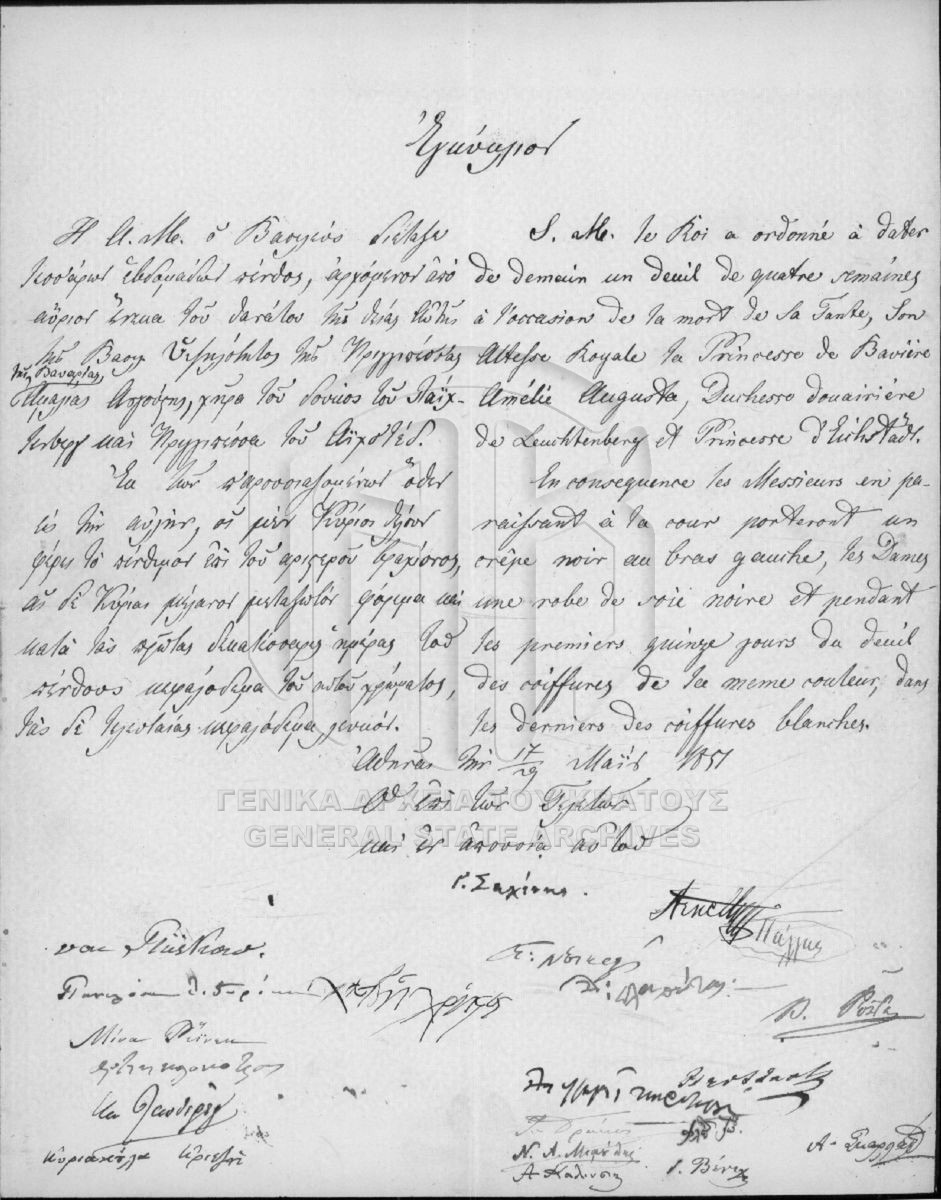 Ἐγκύκλιος
Ἡ Α. Μ. ὁ Βασιλεὺς διέταξε
τεσσάρων ἑβδομάδων πένθος, ἀρχόμενον ἀπὸ
αὔριον ἕνεκα τοῦ θανάτου τῆς θείας Του τῆς
τῆς Βασιλ Ὑψηλότητος τῆς Πριγκιπίσσης
τῆς Βαυαρίας
Ἀμαλίας Αὐγούστης, χήρα τοῦ δουκὸς τοῦ Λάϊχ-
τενβεργ καὶ Πριγκιπίσσα τοῦ Αἴχστέδ.
Ἐκ τῶν παρουσιαζομένων ὅθεν
εἰς τὴν αὐλήν, οἱ μὲν Κύριοι θέλουν
φέρει τὸ πένθιμον ἐπὶ τοῦ ἀριστεροῦ βραχίονος,
αἱ δὲ Κυρίαι μέλανον μεταξωτὸν φόρεμα καὶ
κατὰ τὰς πρώτας δεκατέσσαρες ἡμέρας τοῦ
πένθους κεφαλόδεμα τοῦ αὐτοῦ χρώματος,
τὰς δὲ τελευταίας κεφαλόδεμα λευκόν.
S. M. le Roi a ordonné à dater
de demain un deuil de quatre semaines
à l'occasion de la mort de Sa Tante, Son
Altesse Royale la Princesse de Bavière
Amélie Augusta, Duchesse douairière
de Leuchtenberg et Princesse d'Eichstädt.
En consequence les Messieurs en pa-
raissant à la cour porteront un
crêpe noir au bras gauche, les Dames
une robe de soie noire et pendant
les premiers quinze jours du deuil
des coiffures de la meme couleur, dans
les derniers des coiffures blanches.
Ἀθήνας τὴν 17/29 Μαΐου 1851
Ὁ ἐπὶ τῶν Τελετῶν
καὶ ἐν ἀπουσίᾳ αὐτοῦ
Γ. Σαχίνης.
ΓΕΝΙΚΑ ΑΡΧΕΙΑ ΤΟΥ ΚΡΑΤΟΥΣ
GENERAL STATE ARCHIVES
von Plüskow.
Πάλλης
Δ. Ρώτα
Ν. Α.
Γ. Βένεζ